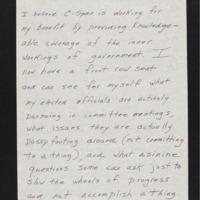 I believe C-Span is working for
my benefit by providing knowledge-
able coverage of the inner
workings of government. I
now have a front row seat
and can see for myself what
my elected officials are actively
pursuing in committee meetings,
what issues they are actually
pussyfooting around (not committing
to a thing), and what asinine
questions some can ask just to
slow the wheels of progress
and not accomplish a thing.